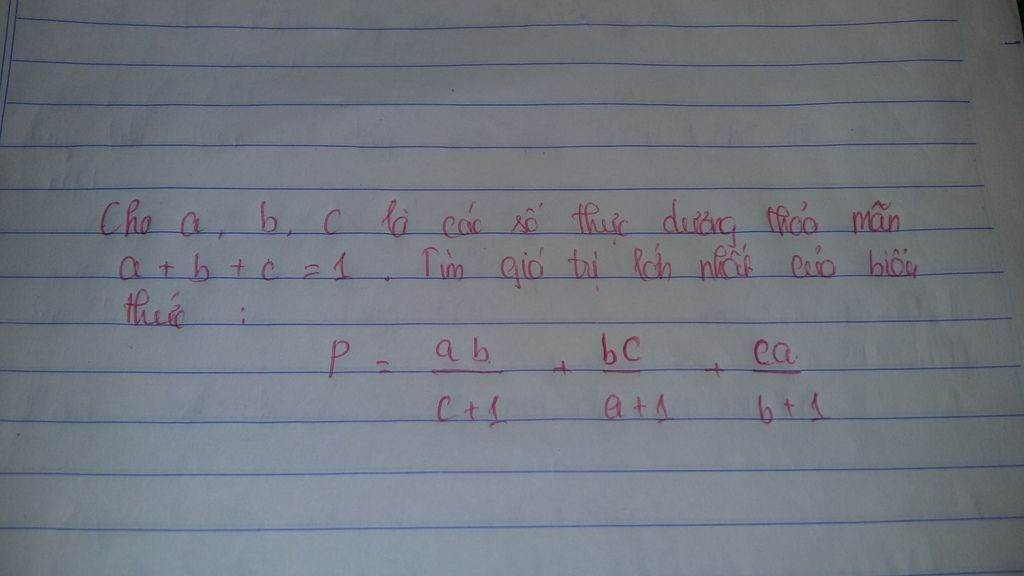 Cho a, b, c là các số thực dương thỏa mãn
a + b + c = 1 . Tìm giá trị lớn nhất của biểu
thức :
P = ab/(c+1) + bc/(a+1) + ca/(b+1)